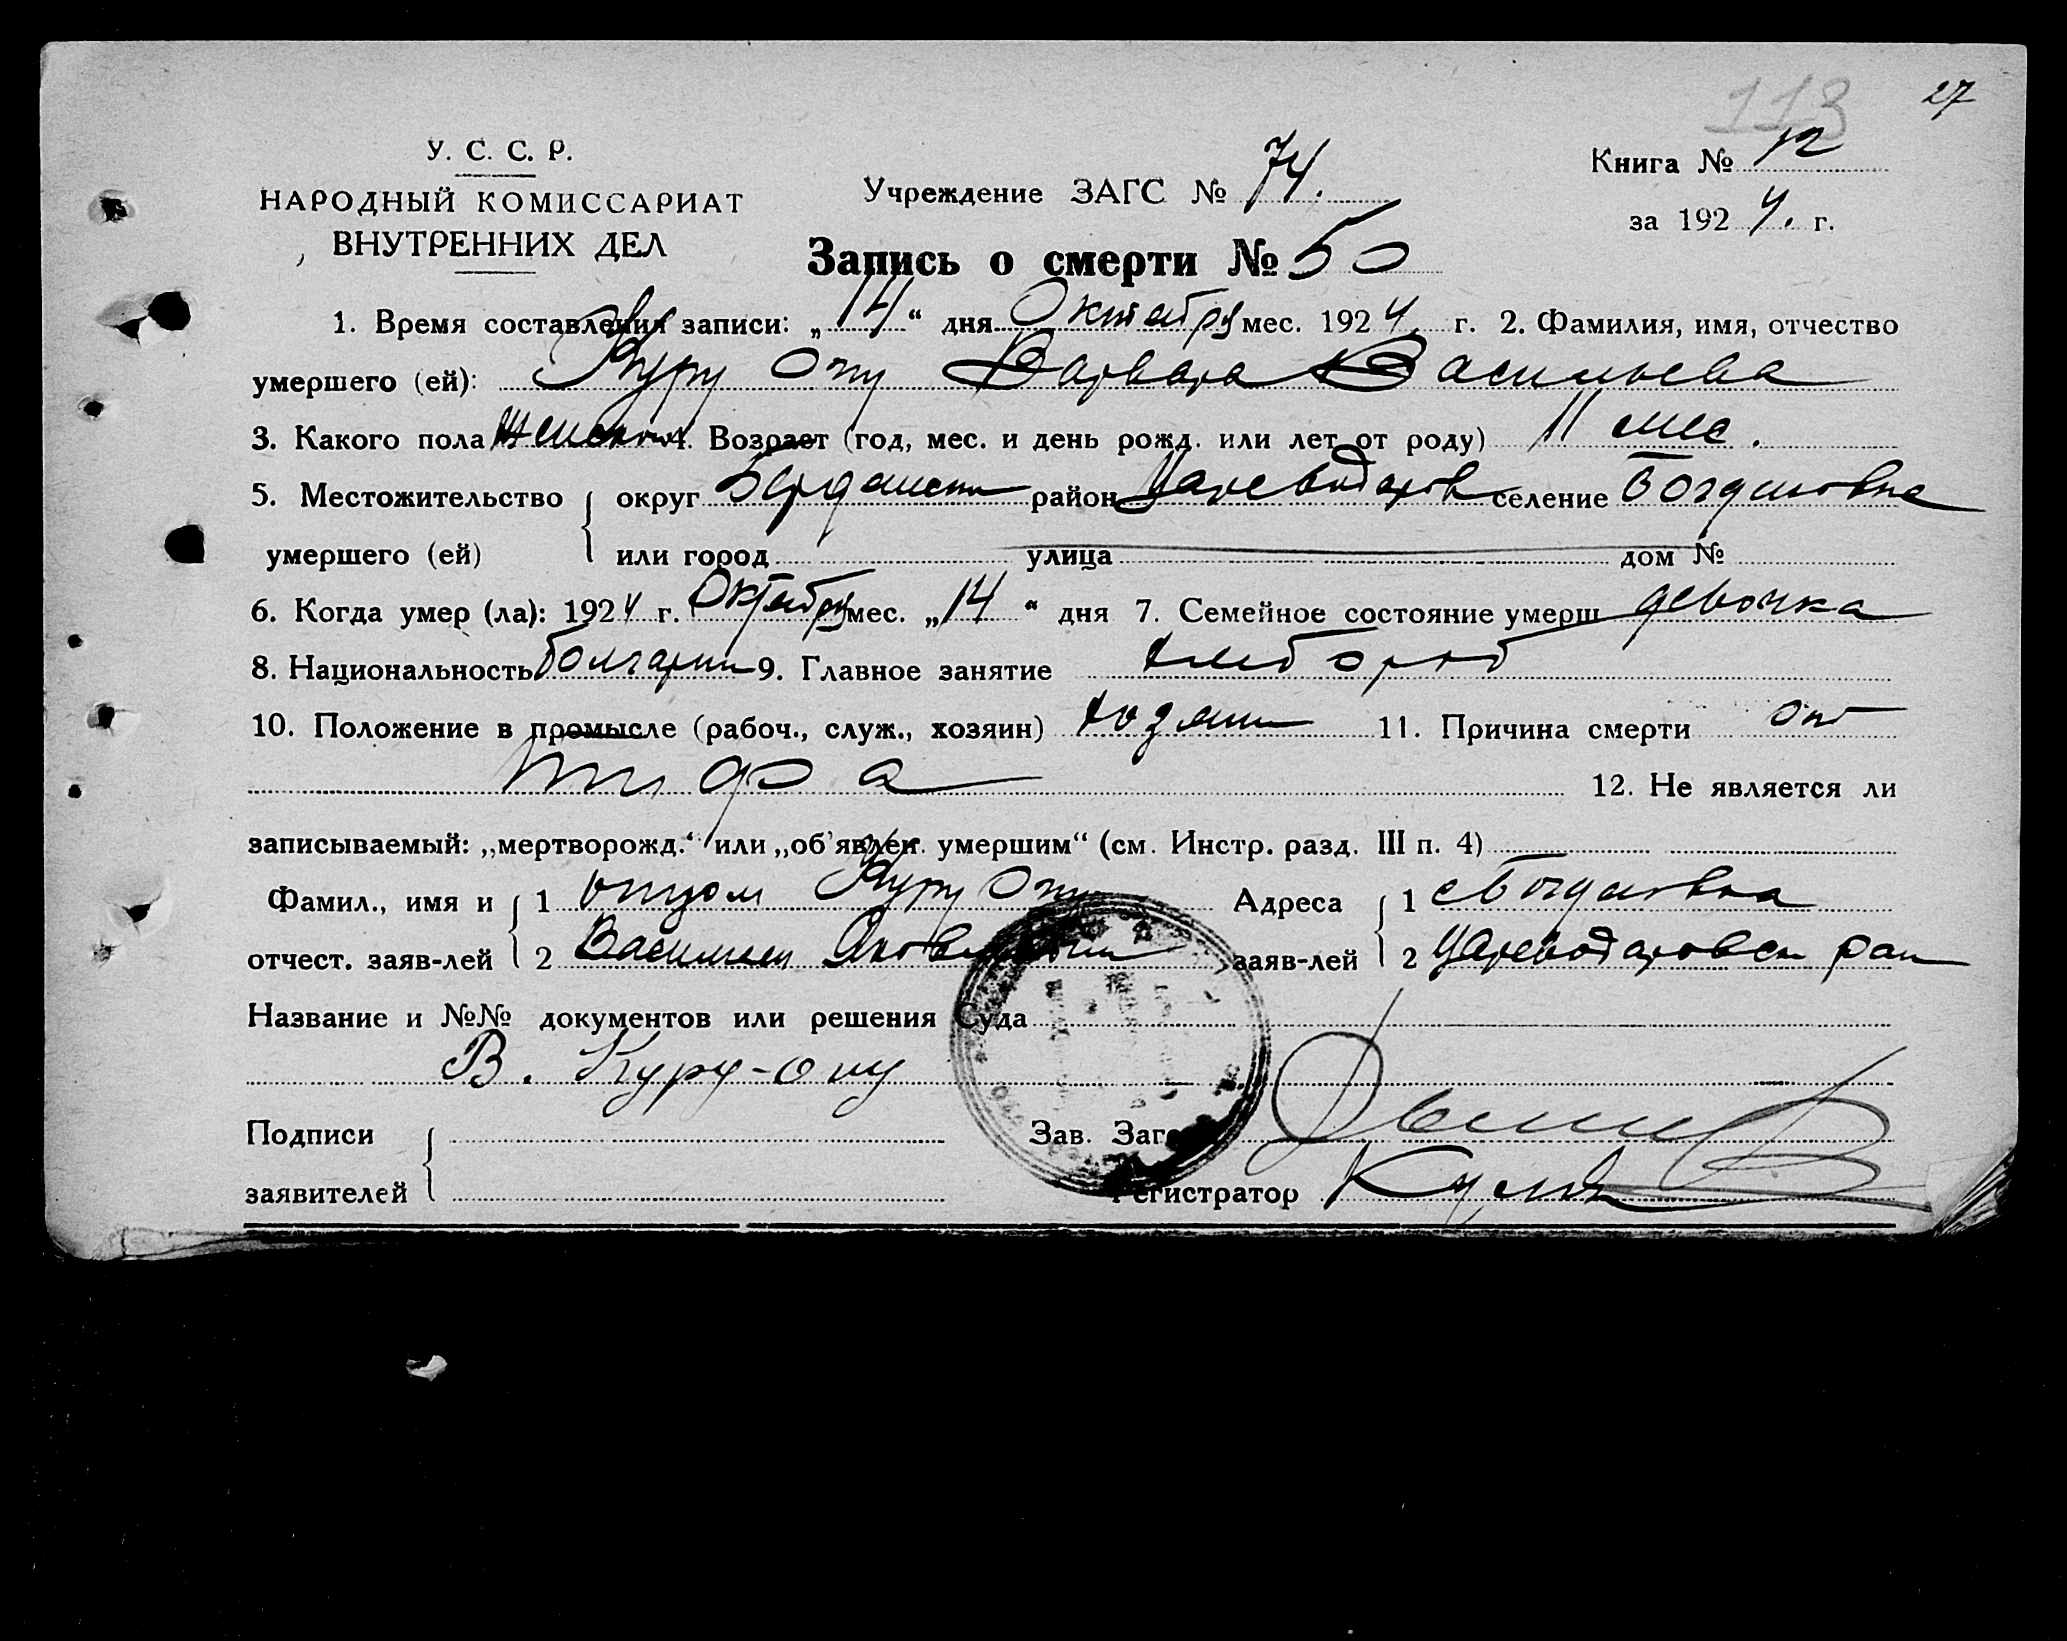 113 27
У. С. С. Р.
НАРОДНЫЙ КОМИССАРИАТ
ВНУТРЕННИХ ДЕЛ
Учреждение ЗАГС № 74.
Книга № 12
за 1924. г.
Запись о смерти № 50
1. Время составления записи: „14“ дня Октября мес. 1924 г. 2. Фамилия, имя, отчество
умершего (ей): Куру Огу Варвара Васильева
3. Какого пола женского 4. Возраст (год, мес. и день рожд. или лет от роду) 11 мес.
5. Местожительство округ Бердянский район Цареводаров селение Богдановка
умершего (ей) или город улица дом №
6. Когда умер (ла): 1924 г. Октября мес. „14“ дня 7. Семейное состояние умерш девочка
8. Национальность болгарин 9. Главное занятие хлебороб
10. Положение в промысле (рабоч., служ., хозяин) хозяин 11. Причина смерти от
тифа 12. Не является ли
записываемый: „мертворожд.“ или „об'явлен. умершим“ (см. Инстр. разд. III п. 4)
Фамил., имя и 1 отцом Куру Огу Адреса 1 с Богдановка
отчест. заяв-лей 2 Василием Яковлевичем заяв-лей 2 Цареводаровск рай
Название и №№ документов или решения Суда
В. Куру-огу
Подписи Зав. Загс
заявителей Регистратор